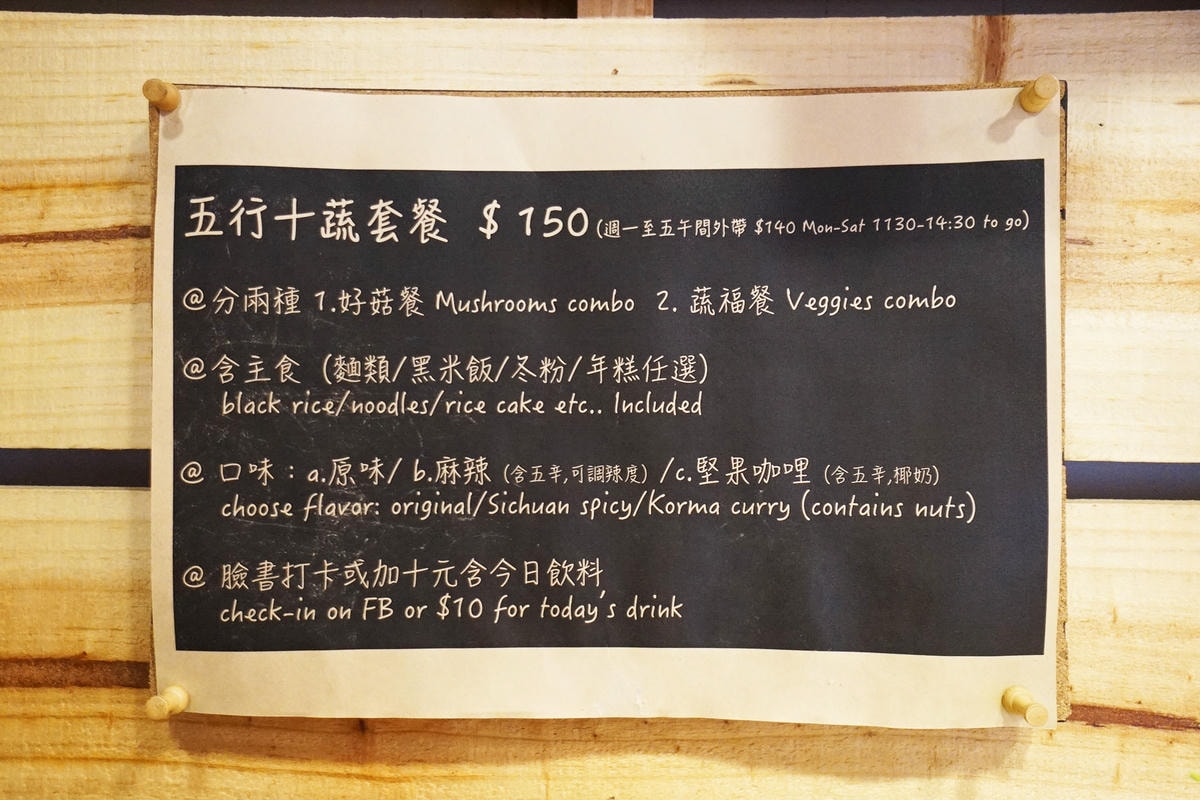 五行十蔬套餐 $ 150 (週一至五午間外帶 $140 Mon-Sat 1130-14:30 to go)
@分兩種 1.好菇餐 Mushrooms combo 2. 蔬福餐 Veggies combo
@含主食 (麵類/黑米飯/冬粉/年糕任選)
black rice/noodles/rice cake etc.. Included
@ 口味：a.原味/ b.麻辣 (含五辛,可調辣度) /c.堅果咖哩 (含五辛,椰奶)
choose flavor: original/Sichuan spicy/Korma curry (contains nuts)
@ 臉書打卡或加十元含今日飲料
check-in on FB or $10 for today's drink